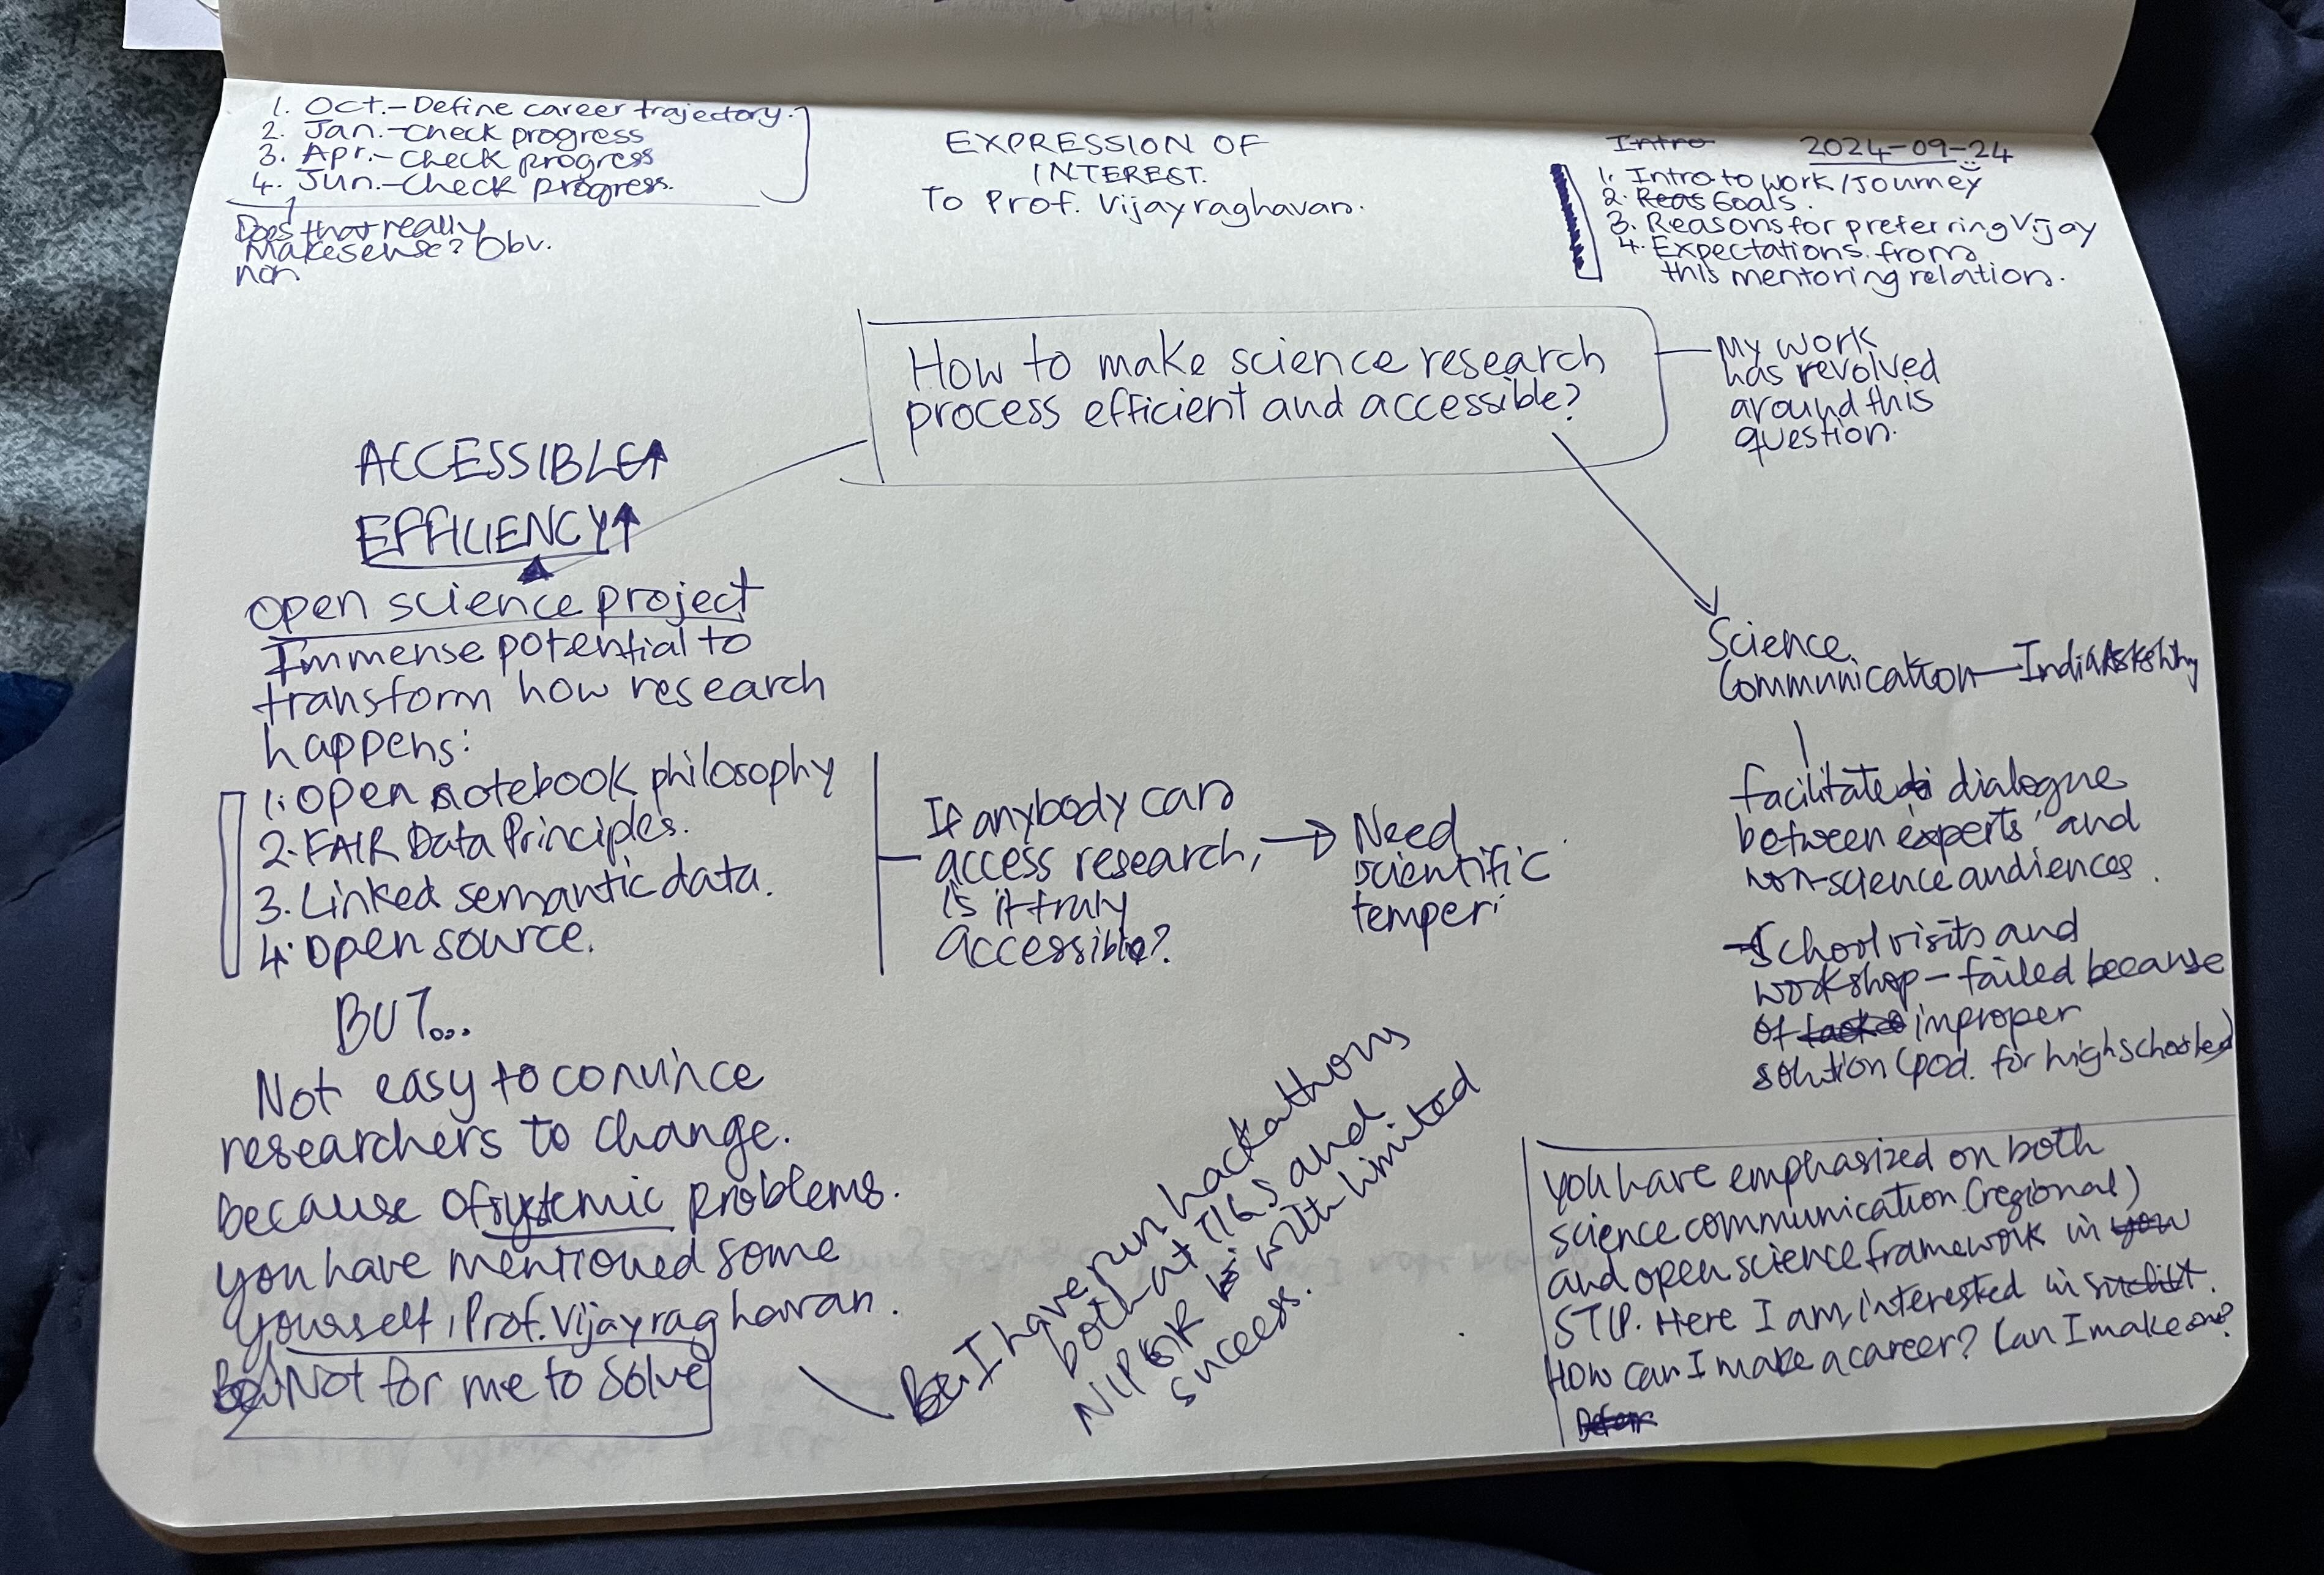 1. Oct.- Define career trajectory.
2. Jan.- Check progress
3. Apr.- Check progress
4. Jun.- Check progress.
Does that really
make sense? Obv.
non
EXPRESSION OF
INTEREST.
To Prof. Vijayraghavan.
Intro
2024-09-24
1. Intro to work/Journey
2. Reas Goals.
3. Reasons for preferring Vijay
4. Expectations from
this mentoring relation.
How to make science research
process efficient and accessible?
My work
has revolved
around this
question.
ACCESSIBLE↑
EFFICIENCY↑
Open science project
Immense potential to
transform how research
happens:
1. Open notebook philosophy
2. FAIR Data Principles.
3. Linked semantic data.
4. Open source.
If anybody can
access research,
is it truly
accessible?
→ Need
scientific
temper.
BUT...
Not easy to convince
researchers to change.
because of systemic problems.
You have mentioned some
yourself, Prof. Vijayraghavan.
Not for me to solve
I have run hackathons
both at and
NIPGR with limited
success.
Science
Communication — IndiAsksWhy
facilitate dialogue
between 'experts' and
non-science audiences.
School visits and
workshop - failed because
of improper
solution (pod. for highschooler)
You have emphasized on both
science communication (regional)
and open science framework in you
STIP. Here I am, interested in
How can I make a career? Can I make one?